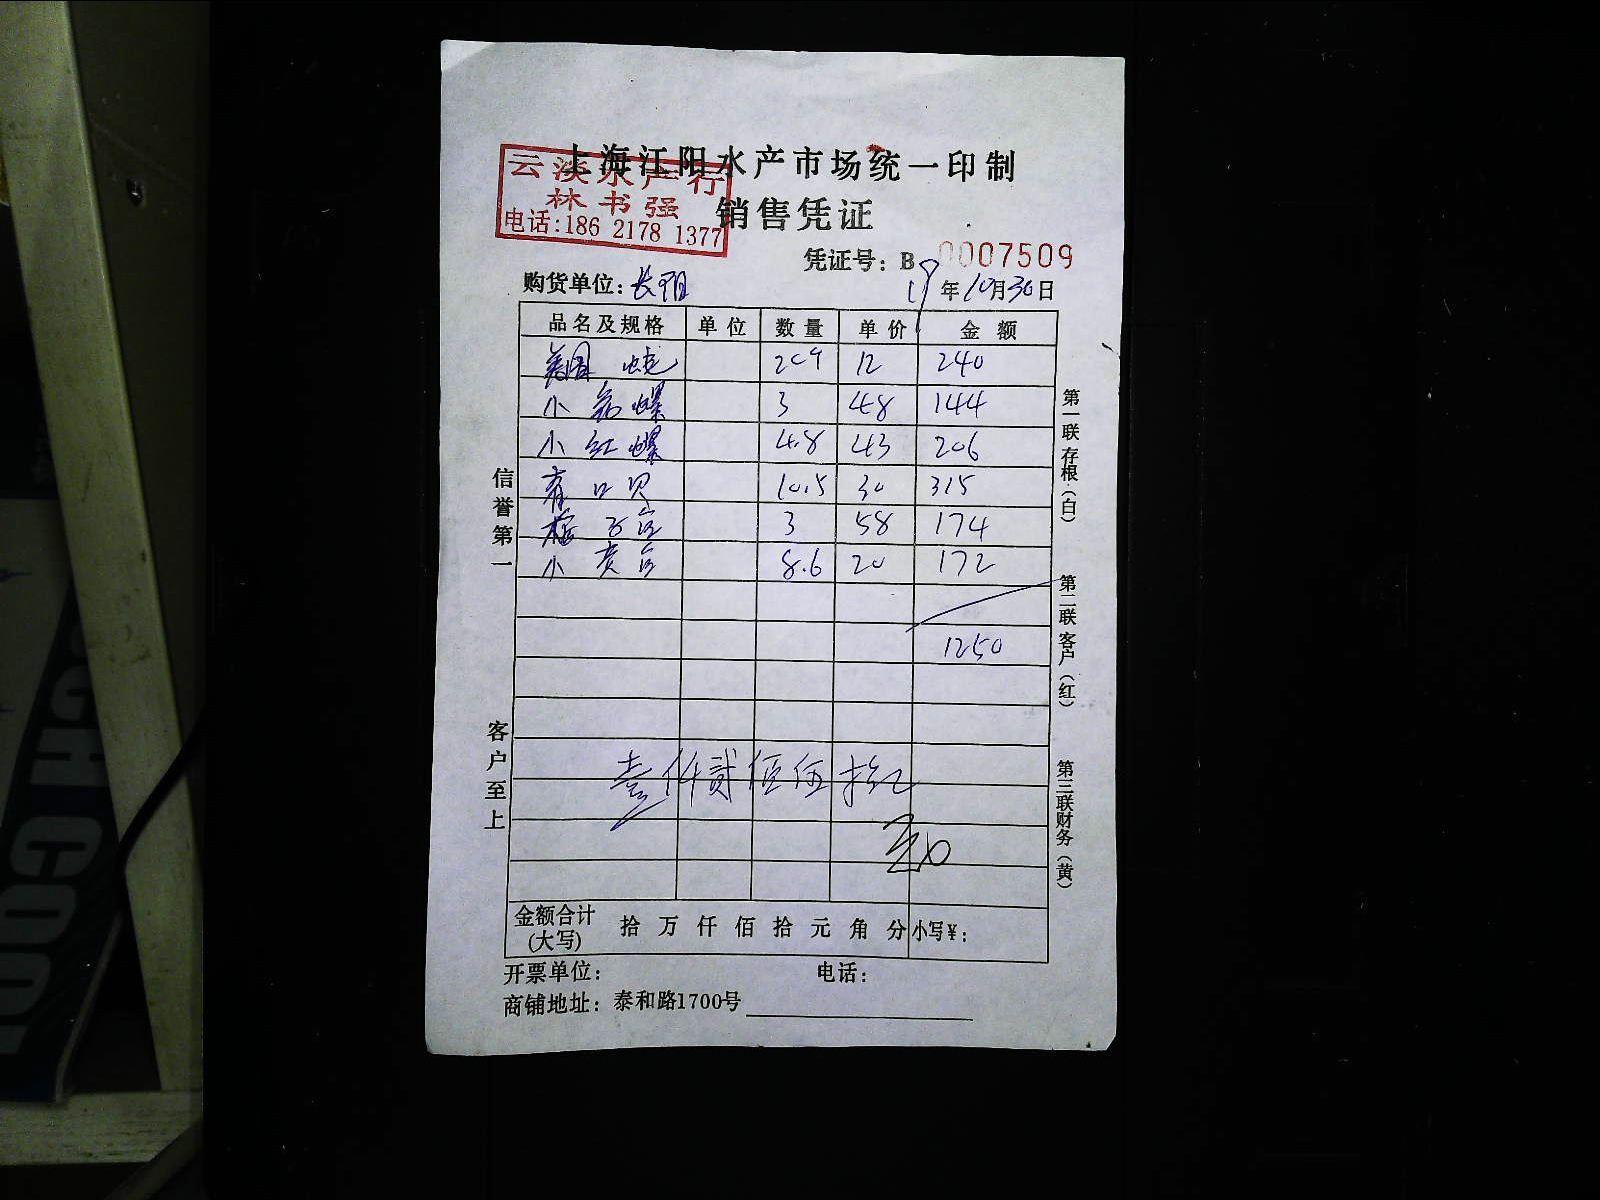 上海江阳水产市场统一印制
云淡水产行
林书强
电话:186 2178 1377
销售凭证
凭证号: B 0007509
购货单位: 长阳
19年10月30日
品名及规格 单位 数量 单价 金额
美国 12 240
小 螺 3 48 144
小红螺 4.8 43 206
口贝 10.5 30 315
3 58 174
小黄 8.6 20 172
1250
壹仟贰佰伍拾
金额合计(大写) 拾 万 仟 佰 拾 元 角 分 小写¥:
开票单位: 电话:
商铺地址: 泰和路1700号
信誉第一
客户至上
第一联 存根(白)
第二联 客户(红)
第三联 财务(黄)
COOL